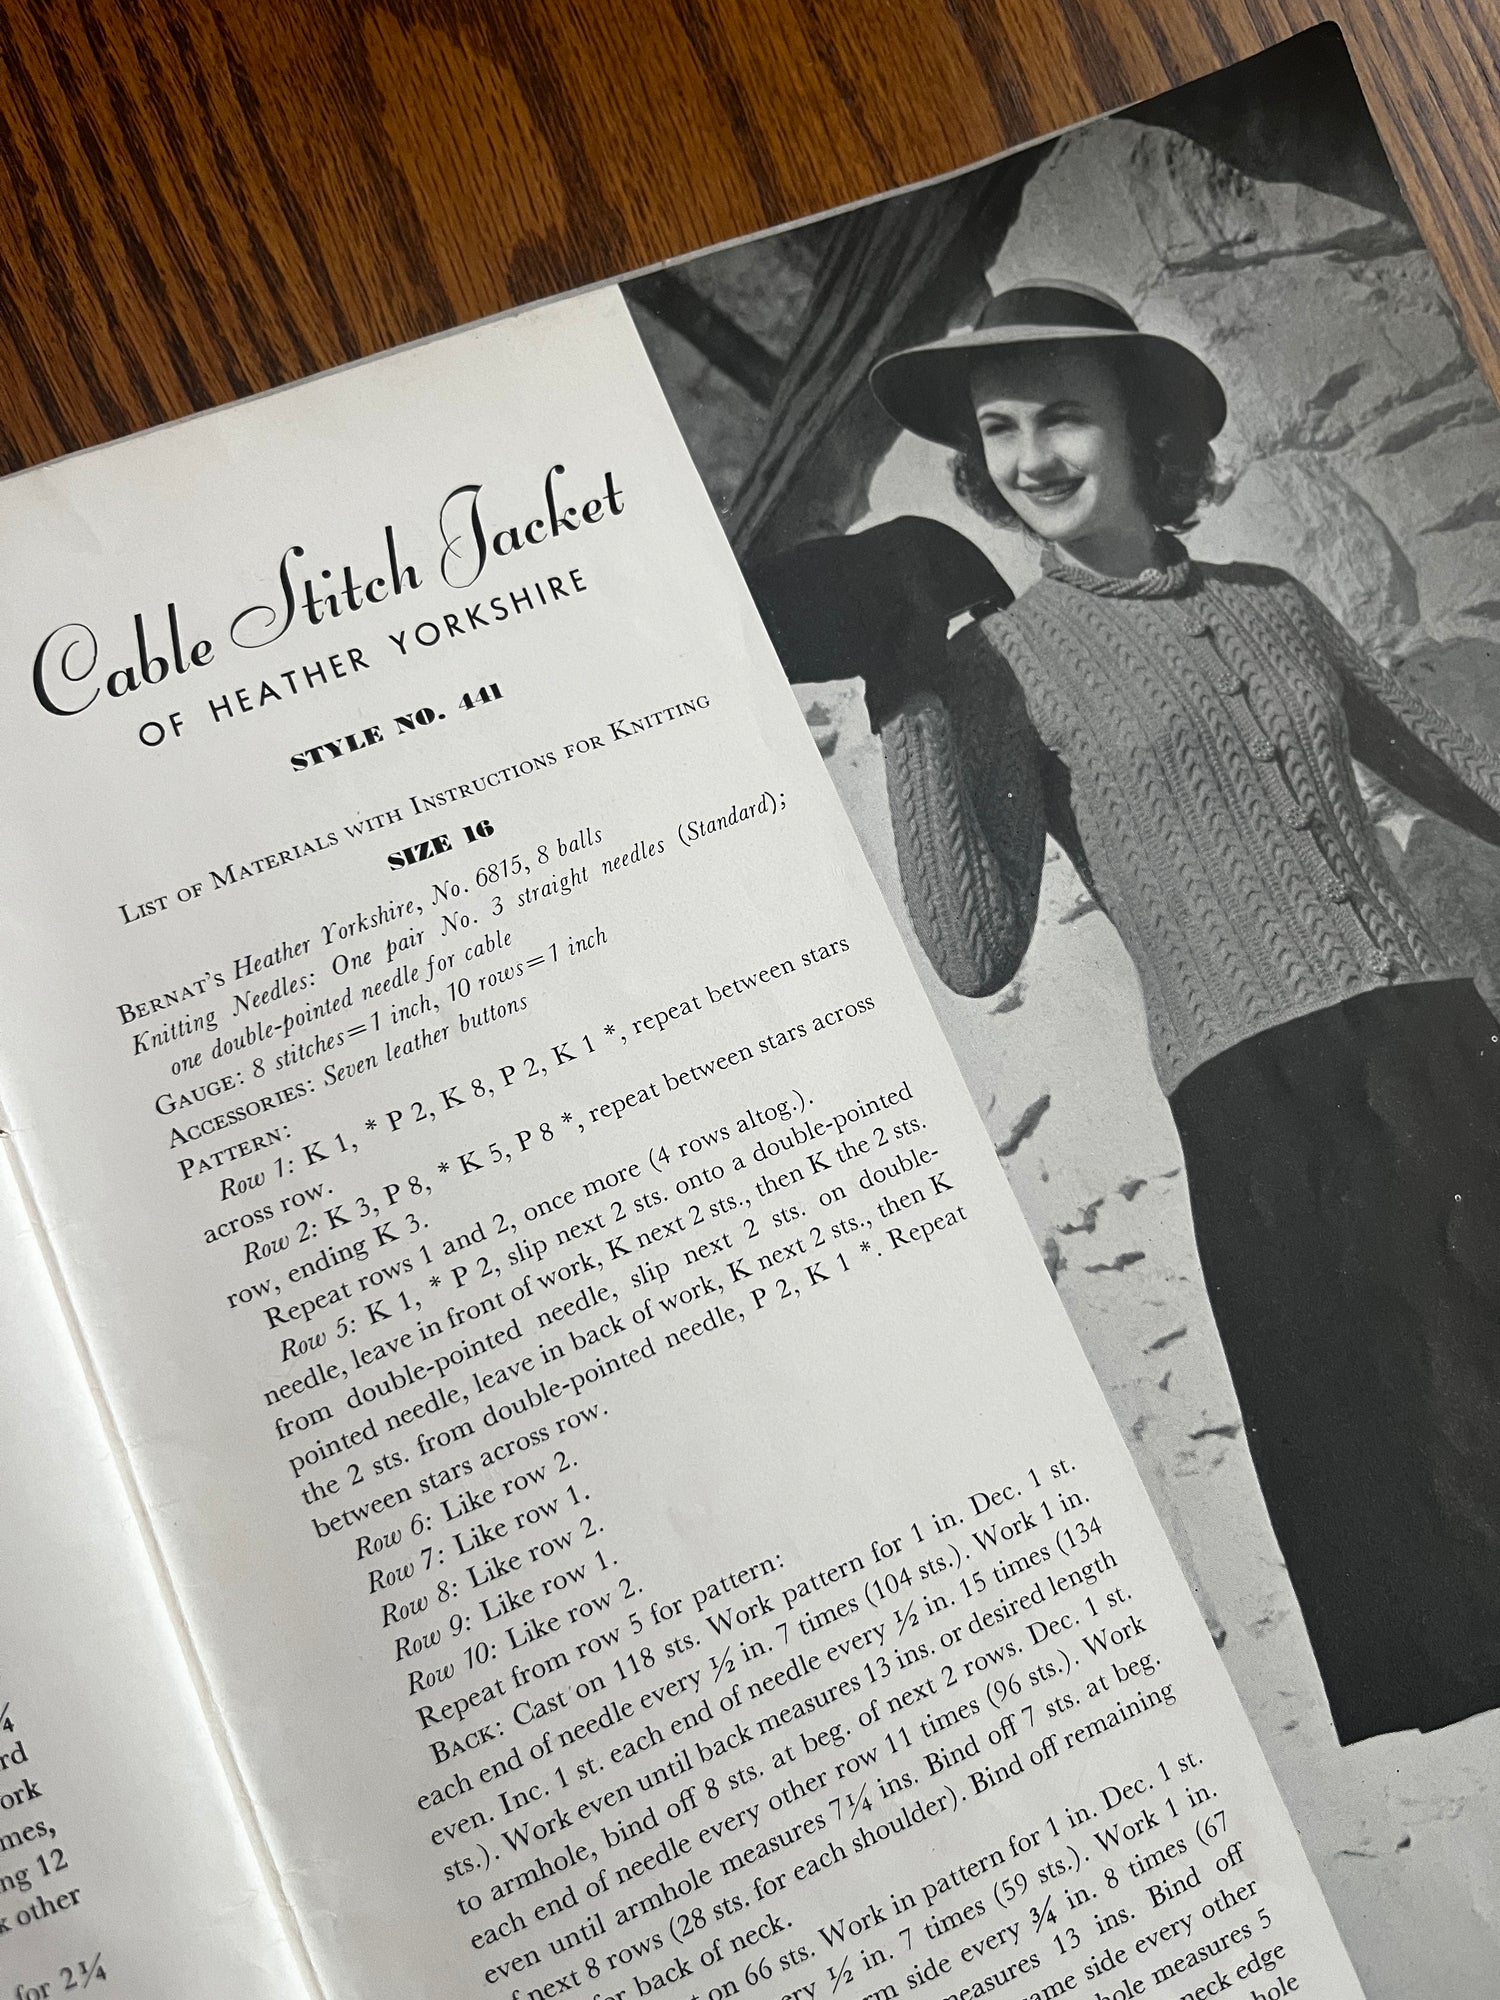 Cable Stitch Jacket
OF HEATHER YORKSHIRE
STYLE NO. 441
LIST OF MATERIALS WITH INSTRUCTIONS FOR KNITTING
SIZE 16
BERNAT'S Heather Yorkshire, No. 6815, 8 balls
Knitting Needles: One pair No. 3 straight needles (Standard);
one double-pointed needle for cable
GAUGE: 8 stitches=1 inch, 10 rows=1 inch
ACCESSORIES: Seven leather buttons
PATTERN:
Row 1: K 1, * P 2, K 8, P 2, K 1 *, repeat between stars
across row.
Row 2: K 3, P 8, * K 5, P 8 *, repeat between stars across
row, ending K 3.
Repeat rows 1 and 2, once more (4 rows altog.).
Row 5: K 1, * P 2, slip next 2 sts. onto a double-pointed
needle, leave in front of work, K next 2 sts., then K the 2 sts.
from double-pointed needle, slip next 2 sts. on double-
pointed needle, leave in back of work, K next 2 sts., then K
the 2 sts. from double-pointed needle, P 2, K 1 *. Repeat
between stars across row.
Row 6: Like row 2.
Row 7: Like row 1.
Row 8: Like row 2.
Row 9: Like row 1.
Row 10: Like row 2.
Repeat from row 5 for pattern:
BACK: Cast on 118 sts. Work pattern for 1 in. Dec. 1 st.
each end of needle every ½ in. 7 times (104 sts.). Work 1 in.
even. Inc. 1 st. each end of needle every ½ in. 15 times (134
sts.). Work even until back measures 13 ins. or desired length
to armhole, bind off 8 sts. at beg. of next 2 rows. Dec. 1 st.
each end of needle every other row 11 times (96 sts.). Work
even until armhole measures 7¼ ins. Bind off 7 sts. at beg.
next 8 rows (28 sts. for each shoulder). Bind off remaining
back of neck.
on 66 sts. Work in pattern for 1 in. Dec. 1 st.
½ in. 7 times (59 sts.). Work 1 in.
side every ¾ in. 8 times (67
measures 13 ins. Bind off
same side every other
measures 5
neck edge
¼
rd
ork
mes,
ng 12
other
for 2¼